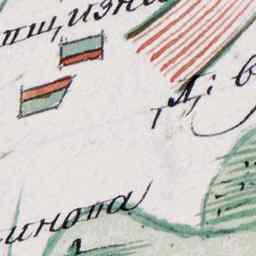 пщизна
Д: в
инова